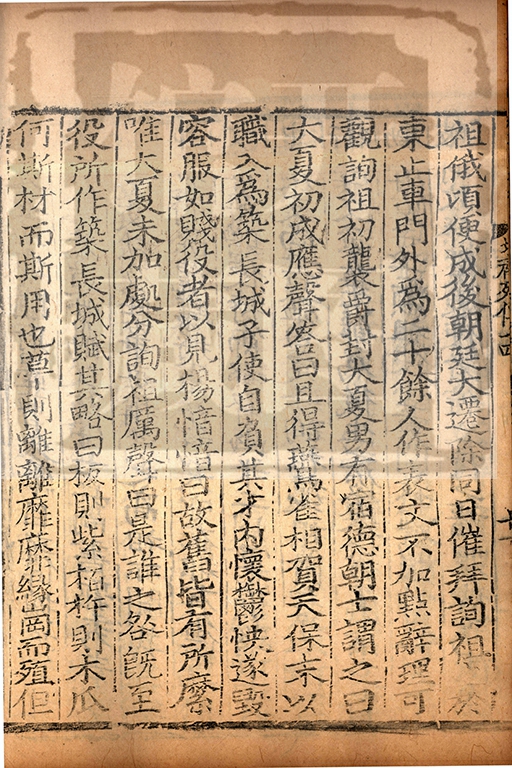 祖俄頃便成後朝廷大遷除同日催拜詢祖於
東止車門外爲二十餘人作表文不加點辭理可
觀詢祖初襲爵封大夏男有宿德朝士謂之曰
大夏初成應聲答曰且得燕雀相賀天保末以
職入爲築長城子使自負其才內懷鬱怏遂毀
容服如賤役者以見楊愔愔曰故舊皆有所縻
唯大夏未加處分詢祖厲聲曰是誰之咎旣至
役所作築長城賦其略曰板則紫栢杵則木瓜
何斯材而斯用也草則離離靡靡緣崗而殖但